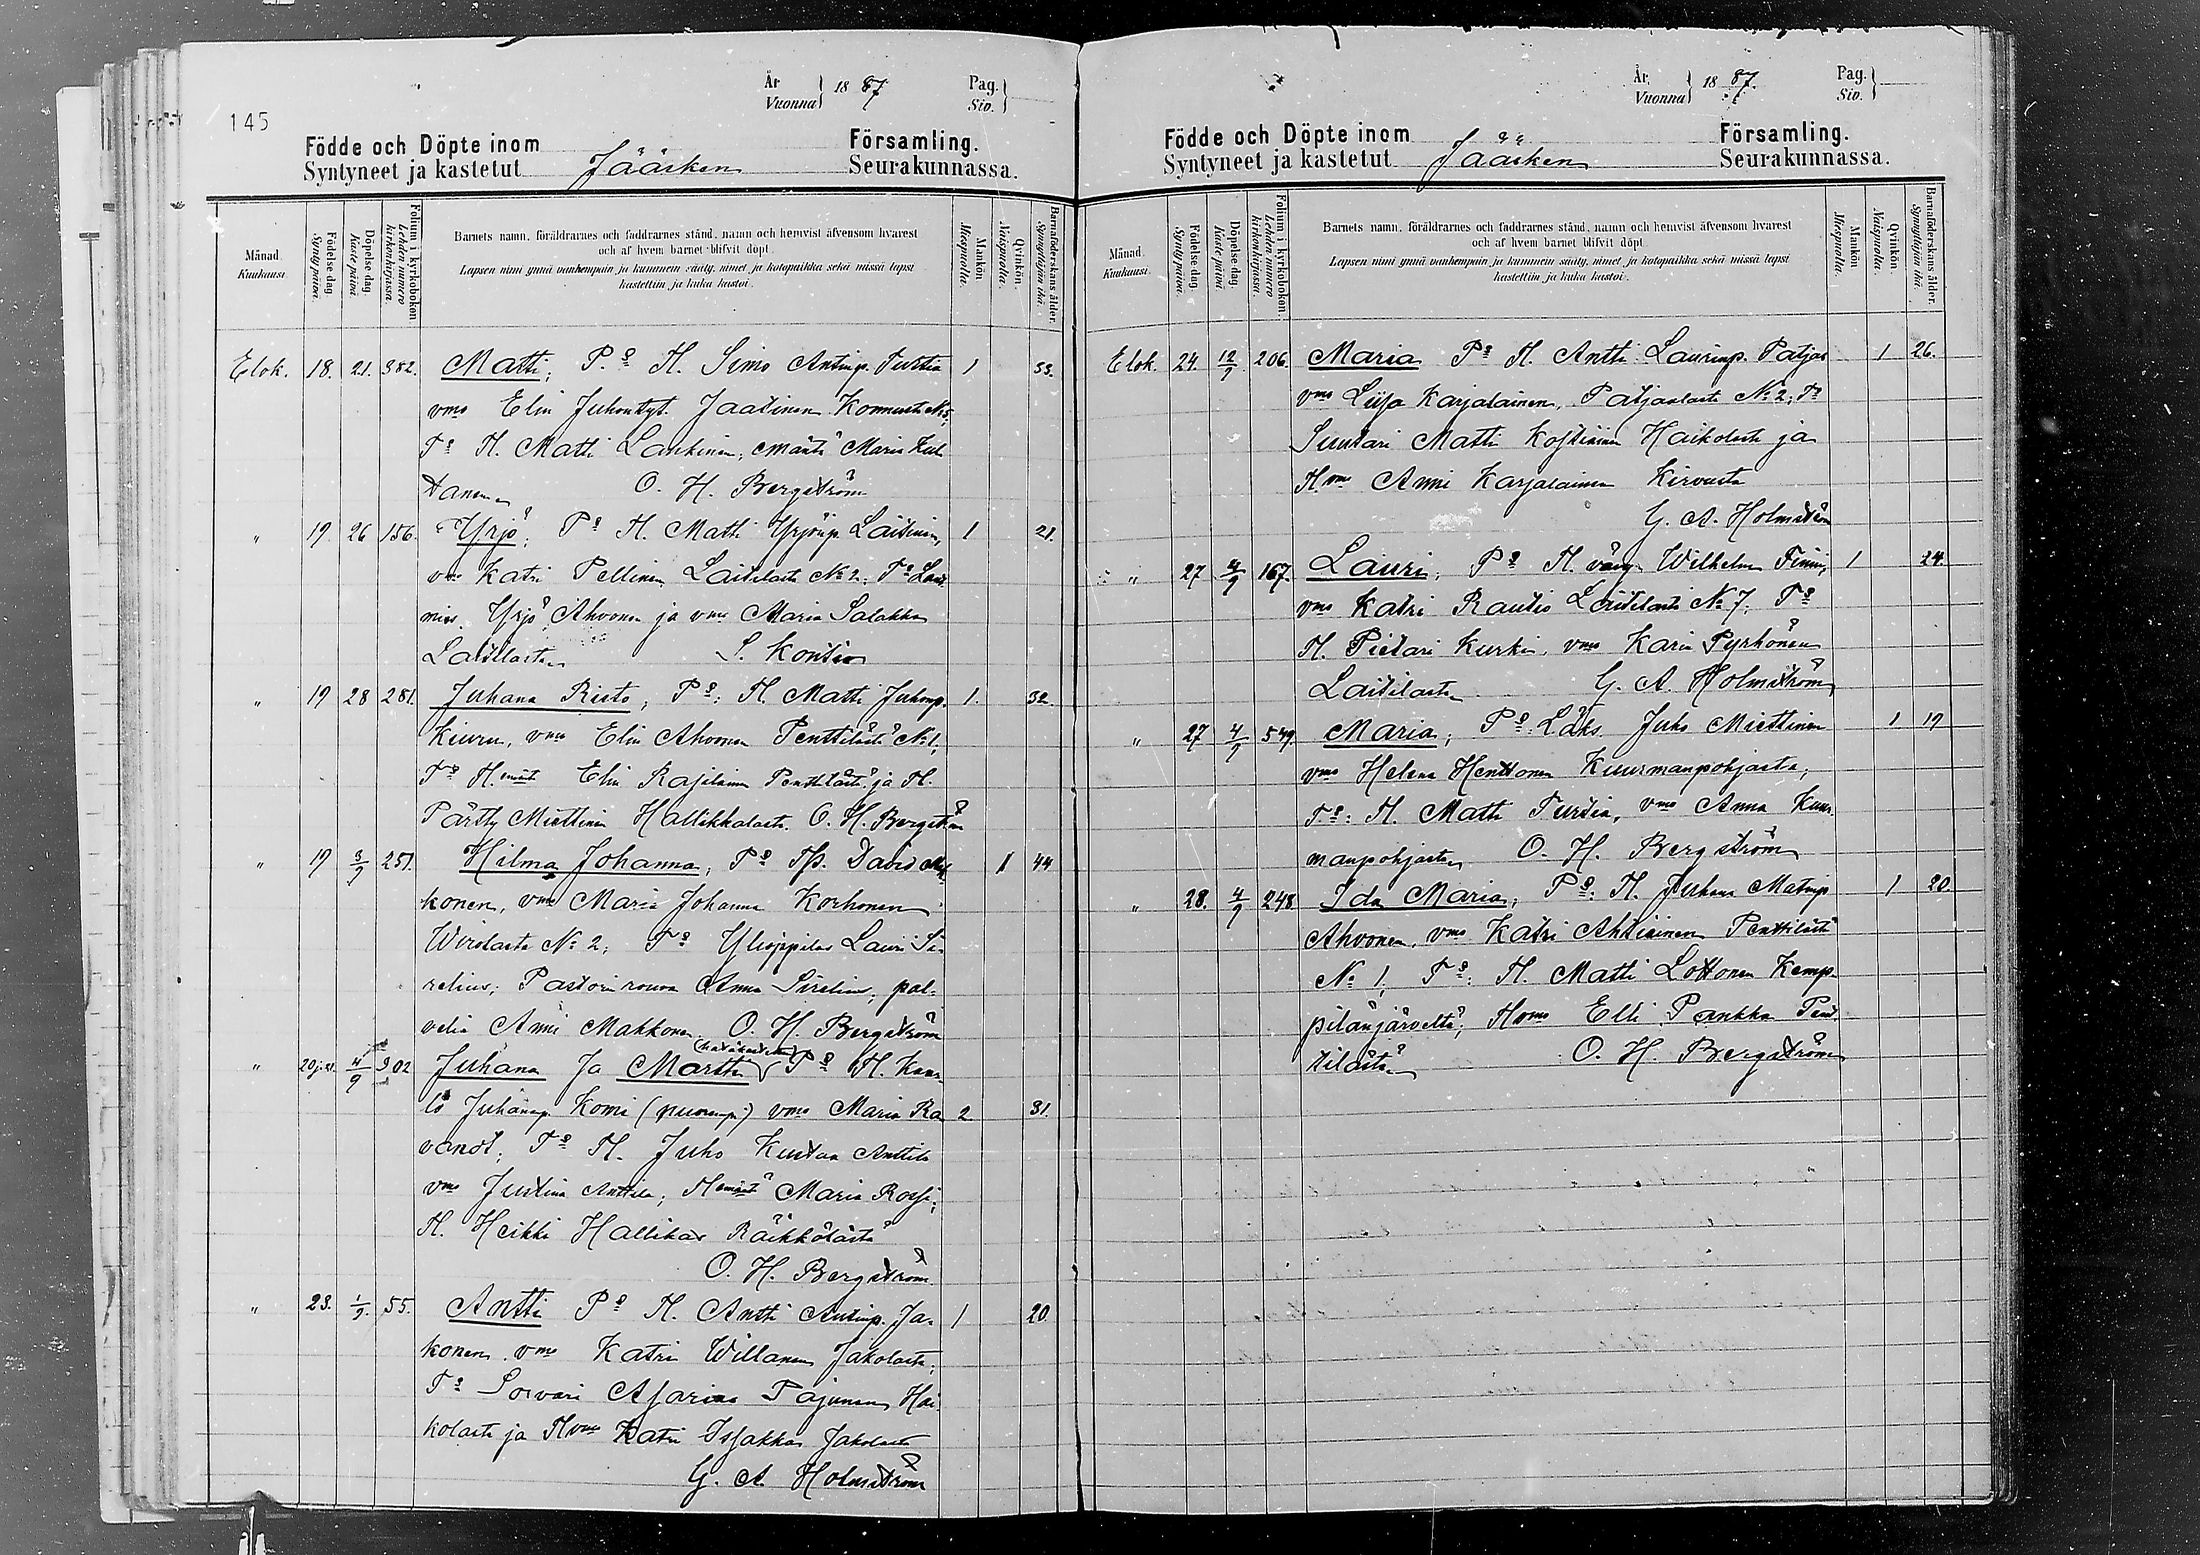 145
År
Vuonna 1887
Pag.
Siv.
Födde och Döpte inom
Syntyneet ja kastetut Jääsken
Församling.
Seurakunnassa.
Månad
Kuukausi
Födelse dag.
Synty päivä.
Döpelse dag.
Kaste päivä
Folium i kyrkoboken
Lehden numero kirkonkirjassa.
Barnets namn, föräldrarnes och faddrarnes stånd, namn och hemvist äfvensom hvarest
och af hvem barnet blifvit döpt.
Lapsen nimi ynnä vanhempain ja kummein sääty, nimet ja kotopaikka sekä missä lapsi
kastettiin ja kuka kastoi.
Mankön
Miespuolia.
Qvinkön
Naispuolia.
Barnaföderskans ålder.
Synnyttäjän ikä.
Elok. 18. 21. 382. Matti; P.º T. Simo Antinp. Turtia 1 33.
vmo Elin Juhontyt. Jaatinen Konnusta No 5,
Tº T. Matti Lankinen, emäntä Maria
O. H. Bergström
" 19 26 156. Yrjö; Pº T. Matti Yrjönp. Laitinen, 1 21.
vmo Katri Pellinen Laitilasta No 2; Tº Lois
mies Yrjö Ahvonen ja vmo Maria Salakka
Laitilasta S. Kontio
" 19 28 281. Juhana Risto, Pº: T. Matti Juhonp. 1. 32.
Kiuru, vmo Elin Ahvonen Penttilästä No 1,
Tº T. emänt Elin Rajilainen Penttilästä ja T.
Pärtty Miettinen Hallikkalasta. O. H. Bergström
" 19 3/9 251. Hilma Johanna, Pº David Mak 1 44
konen, vmo Maria Johanna Korhonen
Wirolasta No 2; Tº Ylioppilas Lauri Si-
relius; Pastorinrouva Anna Sirelius, pal-
velia Anni Makkonen. O. H. Bergström
" 20 j. 21. 4/9 302 Juhana Ja Martti (hätäkaste) Pº T. Kaar-
lo Juhanap. Komi (nuoremp.) vmo Maria Ra 2 31.
vanot; Tº T. Juho Kustaa Anttila
vmo Justina Anttila; T emäntä Maria Rossi;
T. Heikki Hallikas Räikkölästä
O. H. Bergström
" 23. 1/9. 55. Antti Pº T. Antti Antinp. Ja- 1 20.
konen vmo Katri Willanen Jakolasta;
Tº Sorvari Asarias Pajunen Hai-
kolasta ja T vmo Katri Issakka Jakolasta
G. A. Holmström
År
Vuonna 1887.
Pag.
Siv.
Födde och Döpte inom
Syntyneet ja kastetut Jääsken
Församling.
Seurakunnassa.
Månad
Kuukausi
Födelse dag.
Synty päivä.
Döpelse dag.
Kaste päivä
Folium i kyrkoboken
Lehden numero kirkonkirjassa.
Barnets namn, föräldrarnes och faddrarnes stånd, namn och hemvist äfvensom hvarest
och af hvem barnet blifvit döpt.
Lapsen nimi ynnä vanhempain ja kummein sääty, nimet ja kotopaikka sekä missä lapsi
kastettiin ja kuka kastoi.
Mankön
Miespuolia.
Qvinkön
Naispuolia.
Barnaföderskans ålder.
Synnyttäjän ikä.
Elok. 24. 12/9 206. Maria Pº T. Antti Laurinp. Patjas 1 26.
vmo Liisa Karjalainen, Patjaalasta No 2; Tº
Suutari Matti Kostiainen Haikolasta ja
T. vmo Anni Karjalainen Kirvusta
G. A. Holmström
" 27 4/9 167. Lauri; Pº T. vävy Wilhelm 1 24.
vmo Katri Rautio Laitilasta No 7; Tº
T. Pietari Kurki, vmo Karin Pyrhönen
Laitilasta G. A. Holmström
" 27 4/9 549. Maria; Pº Läks. Juho Miettinen 1 19
vmo Helena Henttonen Kuurmanpohjasta;
Tº: T. Matti Turtia, vmo Anna Kuur-
manpohjasta O. H. Bergström
" 28. 4/9 248 Ida Maria, Pº: T. Juhana Matinp 1 20.
Ahvonen, vmo Katri Ahtiainen Penttilästä
No 1, Tº: T. Matti Lottonen Kemp-
pilänjärveltä; T vmo Elli Pankka Pent-
tilästä O. H. Bergström